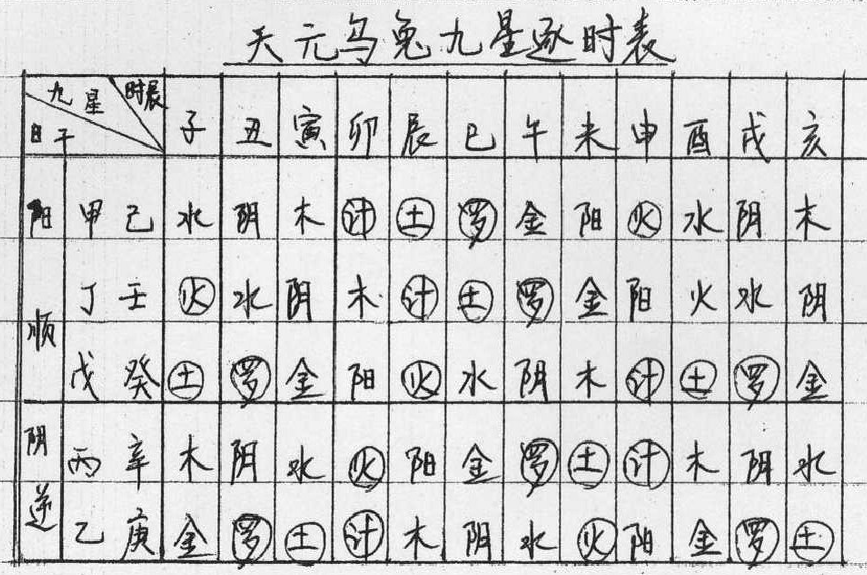 天元乌兔九星逐时表
九星 时辰 日干 子 丑 寅 卯 辰 巳 午 未 申 酉 戌 亥
阳顺 甲己 水 阴 木 计 土 罗 金 阳 火 水 阴 木
丁壬 火 水 阴 木 计 土 罗 金 阳 火 水 阴
戊癸 土 罗 金 阳 火 水 阴 木 计 土 罗 金
阴逆 丙辛 木 阴 水 火 阳 金 罗 土 计 木 阴 水
乙庚 金 罗 土 计 木 阴 水 火 阳 金 罗 土